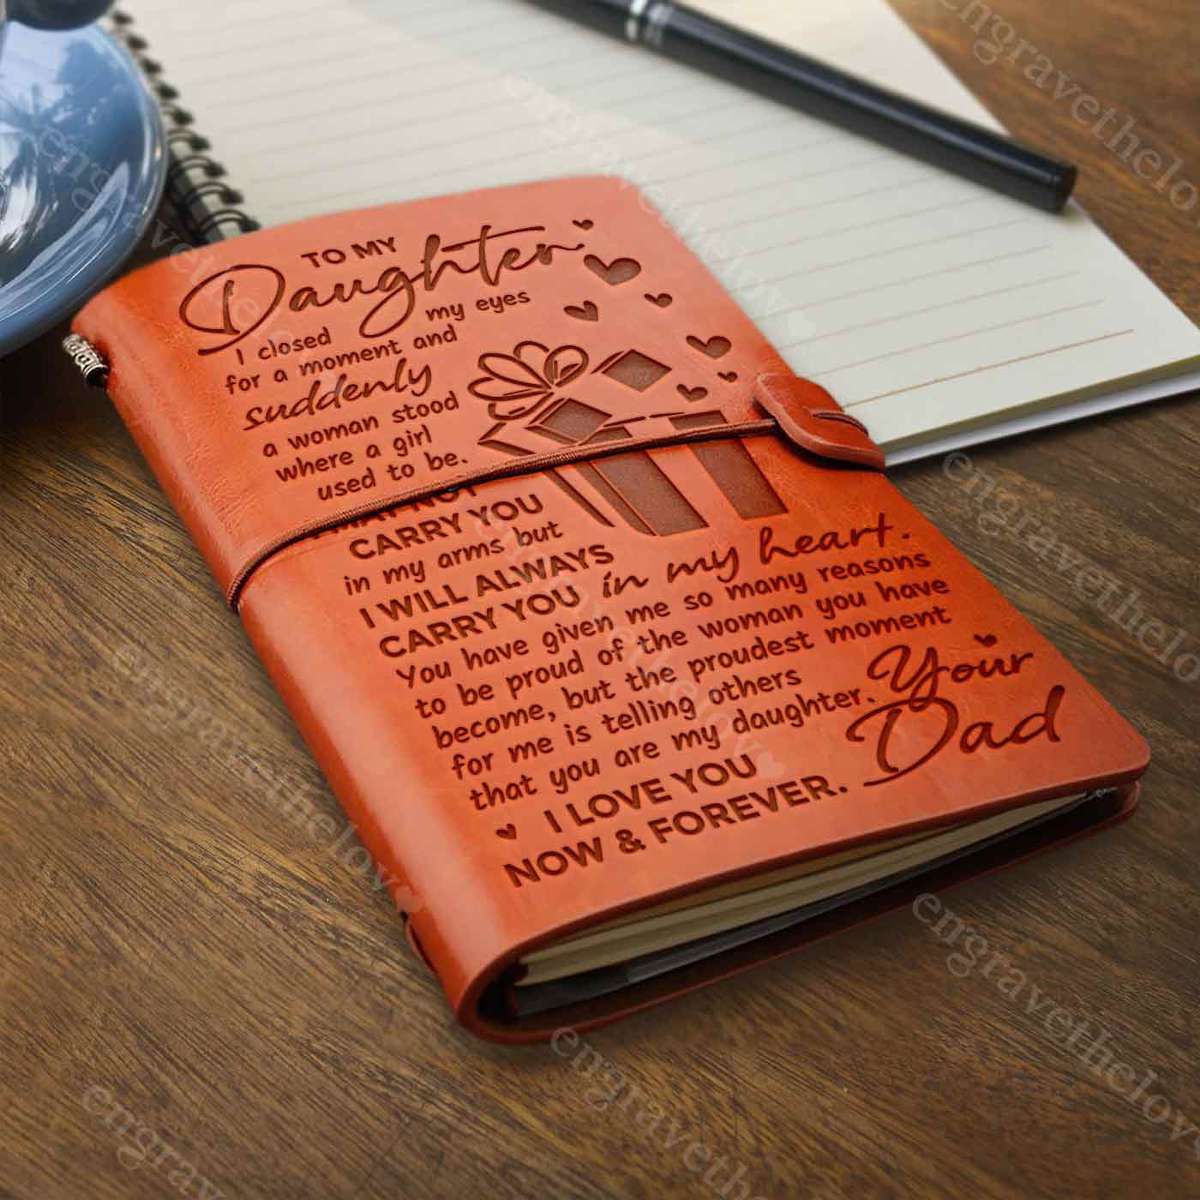 TO MY
Daughter
I closed my eyes
for a moment and
suddenly
a woman stood
where a girl
used to be.
I MAY NOT
CARRY YOU
in my arms but
I WILL ALWAYS
CARRY YOU in my heart.
You have given me so many reasons
to be proud of the woman you have
become, but the proudest moment
for me is telling others
that you are my daughter.
I LOVE YOU
NOW & FOREVER.
Your
Dad
engravethelove
engravethelov
engravethelov
engravethelov
engravethelov
engravethelov